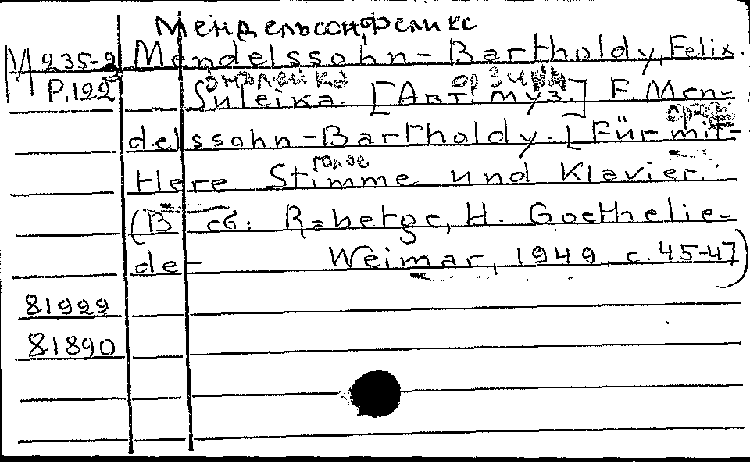 Мендельсон, Феликс
М 235-2 Mendelssohn-Bartholdy, Felix.
Р.122 Suleika. [Авт. муз.] F. Men-
delssohn-Bartholdy. [Für mit-
lere Stimme und Klavier.
(В сб: H. Goethelie-
der Weimar, 1949 с. 45-47)
81929
81890